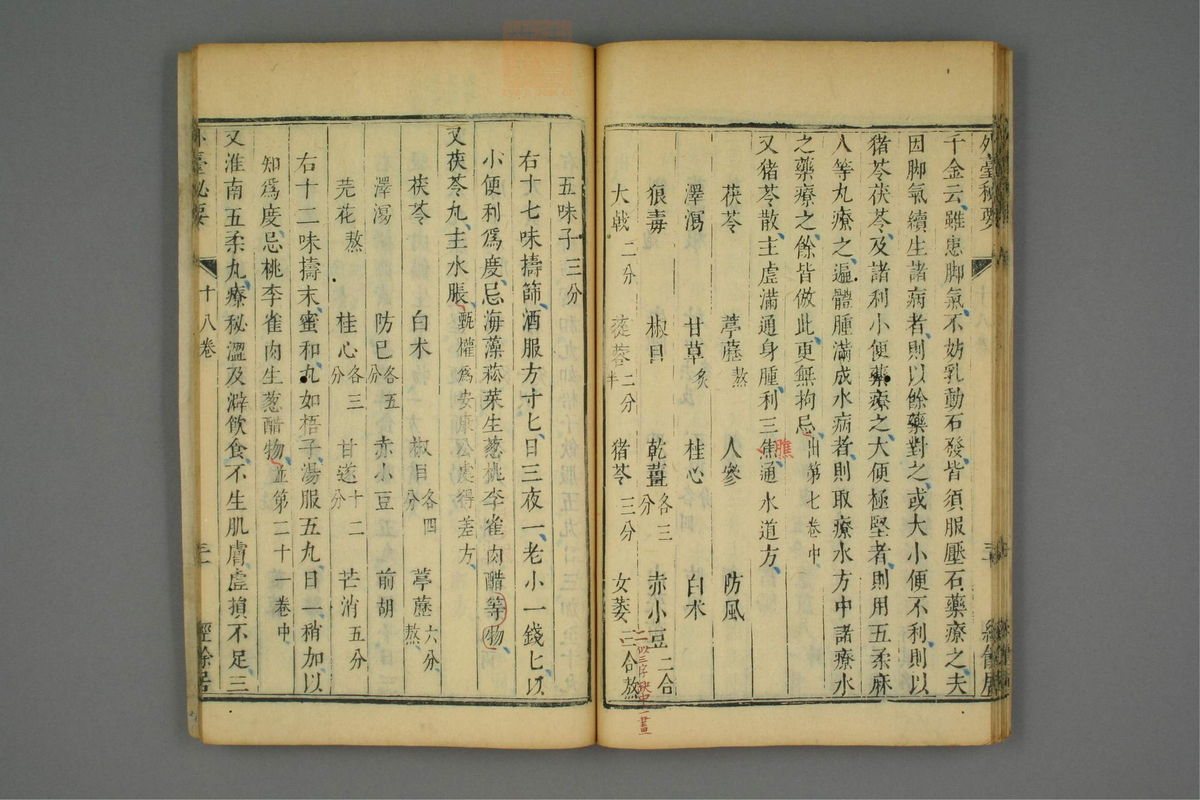 外臺秘要
千金云雖患脚氣不妨乳動石發皆須服壓石藥療之夫
因脚氣續生諸病者則以餘藥對之或大小便不利則以
猪苓茯苓及諸利小便藥療之大便極堅者則用五柔麻
人等丸療之遍體腫滿成水病者則取療水方中諸療水
之藥療之餘皆倣此更無拘忌出第七卷中
又猪苓散主虛滿通身腫利三焦通水道方
膲
茯苓 葶藶熬 人參 防風
澤瀉 甘草炙 桂心 白朮
狼毒 椒目 乾薑各三分 赤小豆二合
大戟二分 蓯蓉二分半 猪苓三分 女萎三合熬
五味子三分
右十七味擣篩酒服方寸匕日三夜一老小一錢匕以
小便利爲度忌海藻菘菜生葱桃李雀肉醋等物
又茯苓丸主水脹甄權爲安康公處得差方
茯苓 白朮 椒目各四分 葶藶六分熬
澤瀉 防巳各五分 赤小豆 前胡
芫花熬 桂心各三分 甘遂十二分 芒消五分
右十二味擣末蜜和丸如梧子湯服五丸日一稍加以
知爲度忌桃李雀肉生葱醋物並第二十一卷中
又淮南五柔丸療秘澀及澼飲食不生肌膚虛損不足三
外臺秘要 十八卷 經餘居